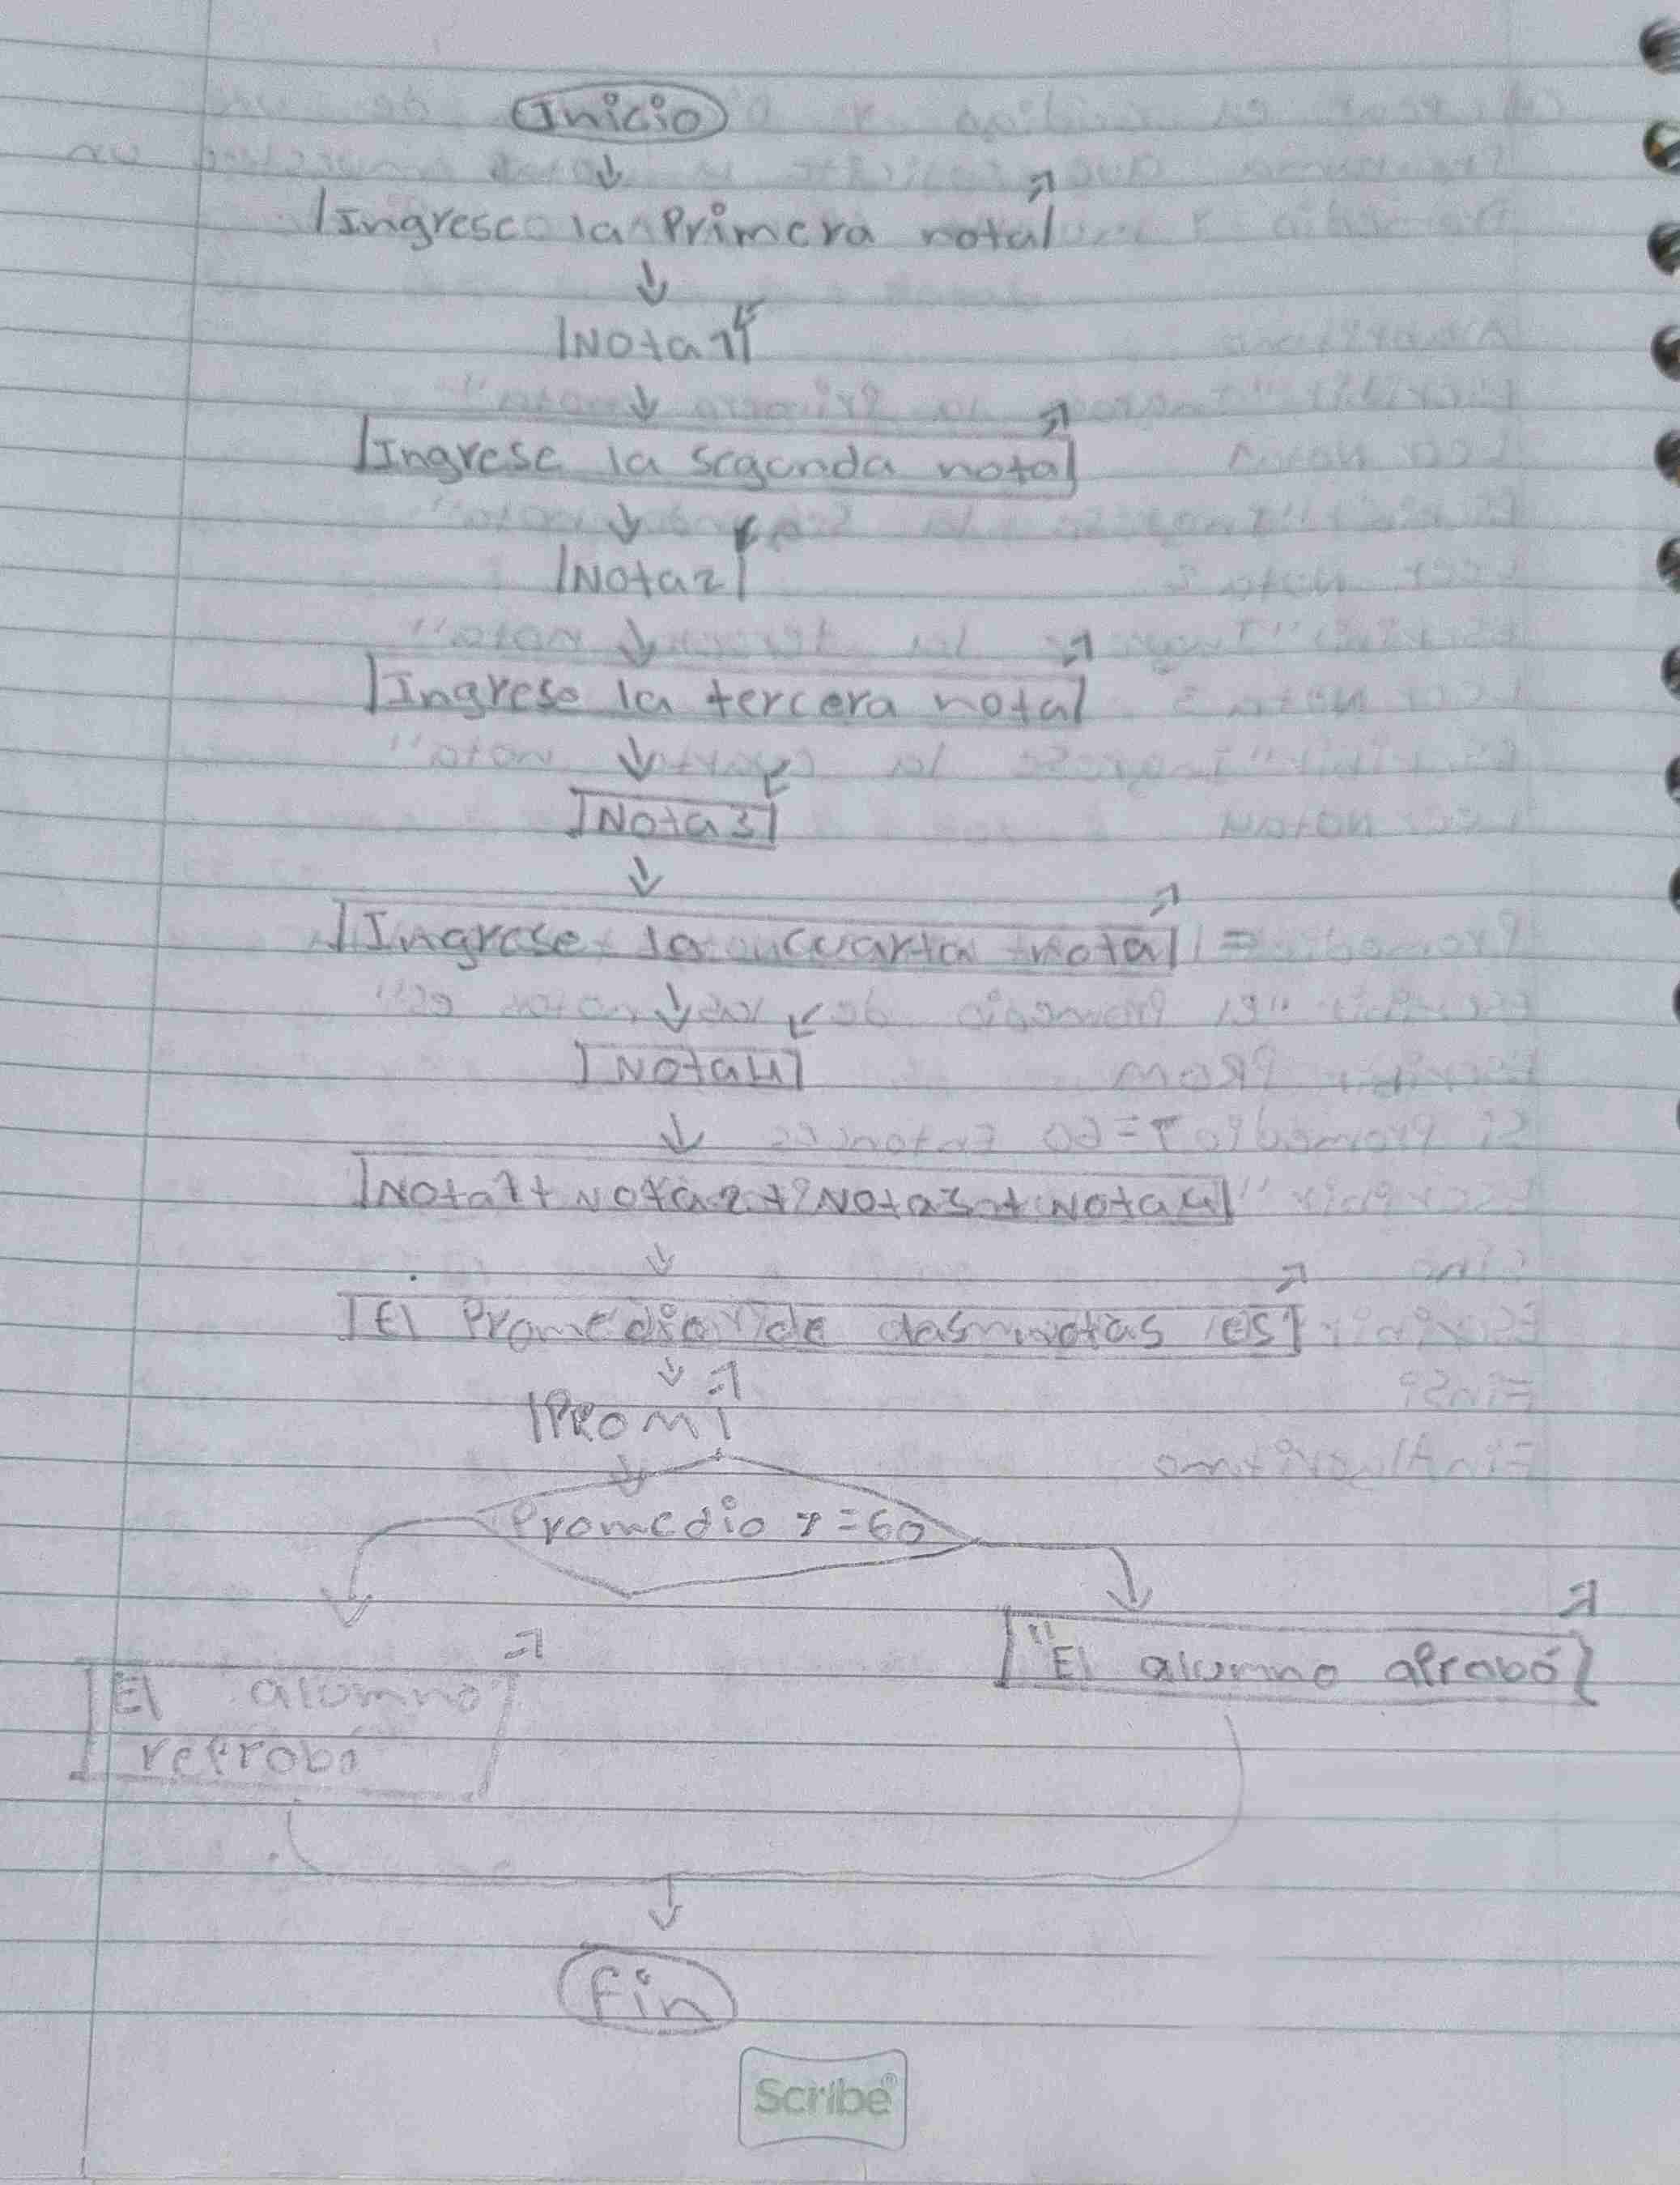 Inicio
Ingrese la Primera nota
Nota1
Ingrese la segunda nota
Nota2
Ingrese la tercera nota
Nota3
Ingrese la cuarta nota
Nota4
Nota1+Nota2+Nota3+Nota4
El Promedio de las notas es
PROM
Promedio >=60
"El alumno aprobó
El alumno
reprobó
Fin
Scribe®